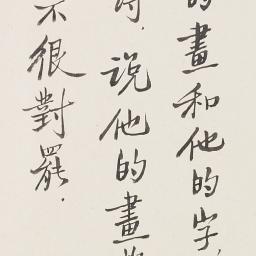 的畫和他的字,
时.说他的畫
不很對罷.